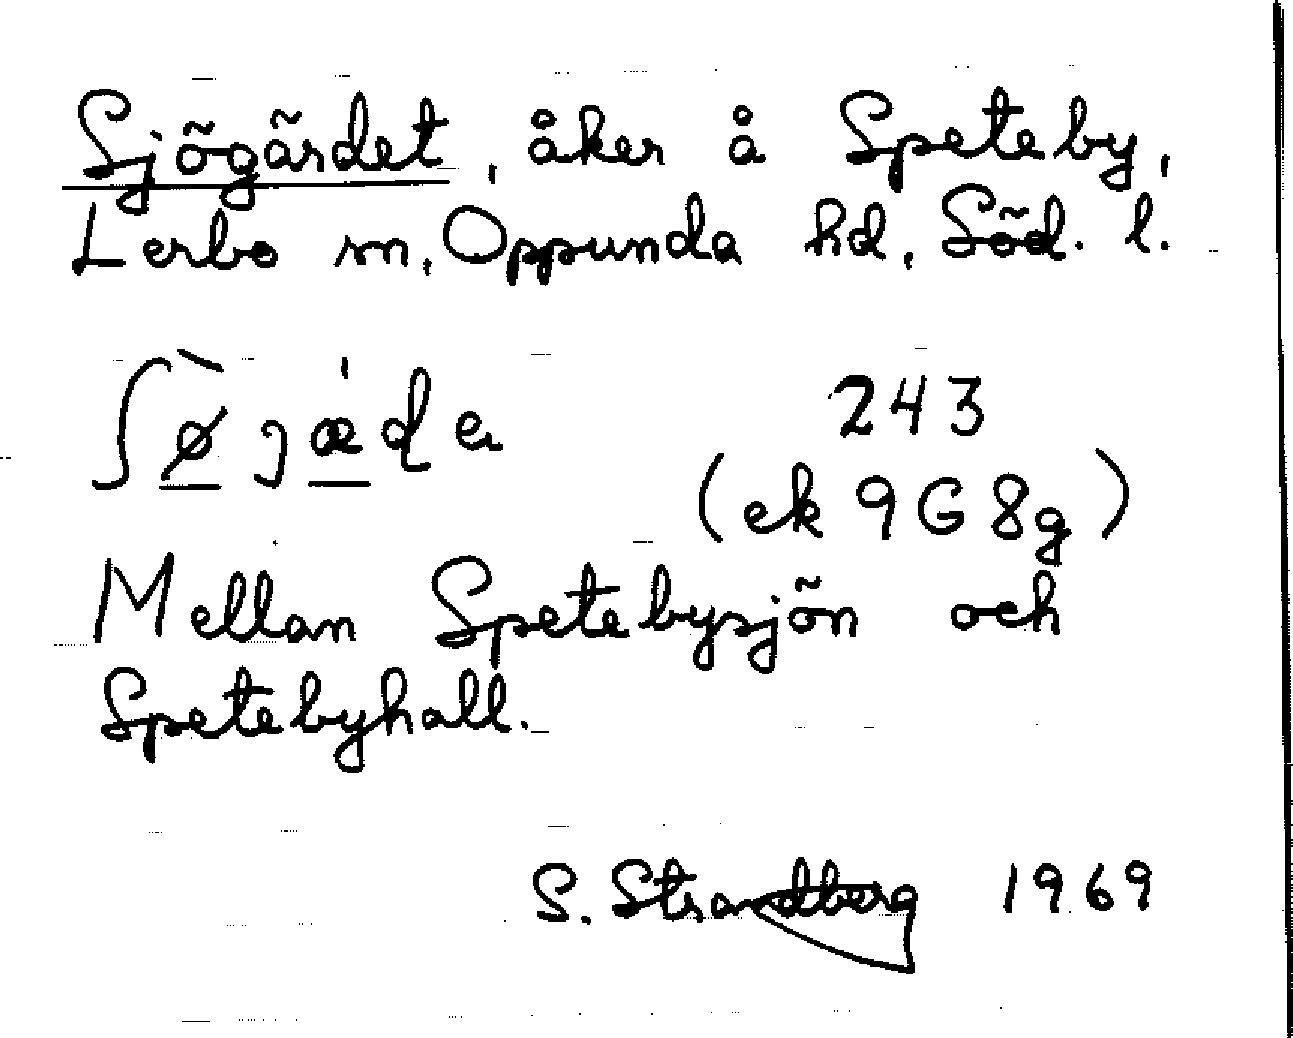 Sjögärdet, åker å Speteby,
Lerbo sn, Oppunda hd, Söd. l.
ʃø̀jæ̍de 243
(ek 9G 8g)
Mellan Spetebysjön och
Spetebyhall.
S. Strandberg 1969